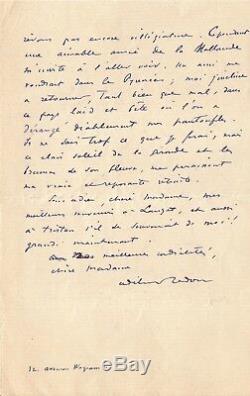 rêvons pas encore villégiature. Cependant
une aimable amie de la Hollande
m'invite à l'aller voir. Un ami me
voudrait dans les Pyrénées ; mais j'incline
à retourner, tant bien que mal, dans
ce pays laid et où l'on a
dérangé diablement mes pantoufles.
Je ne sais trop ce que je ferai, mais
ce clair soleil de la Gironde et les
brumes de son fleuve, me
ma vraie et reposante
adieu, chère madame, mes
meilleurs souvenirs à et aussi
à Tristan s'il se souvenait de moi !
grandi maintenant.
meilleures cordialités,
chère madame
Odilon Redon
32. avenue Wagram